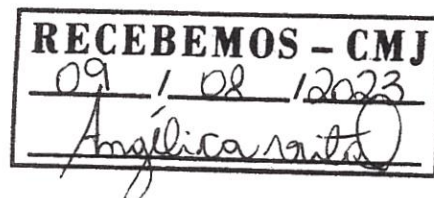 RECEBEMOS – CMJ
09 / 08 / 2023
Angélica